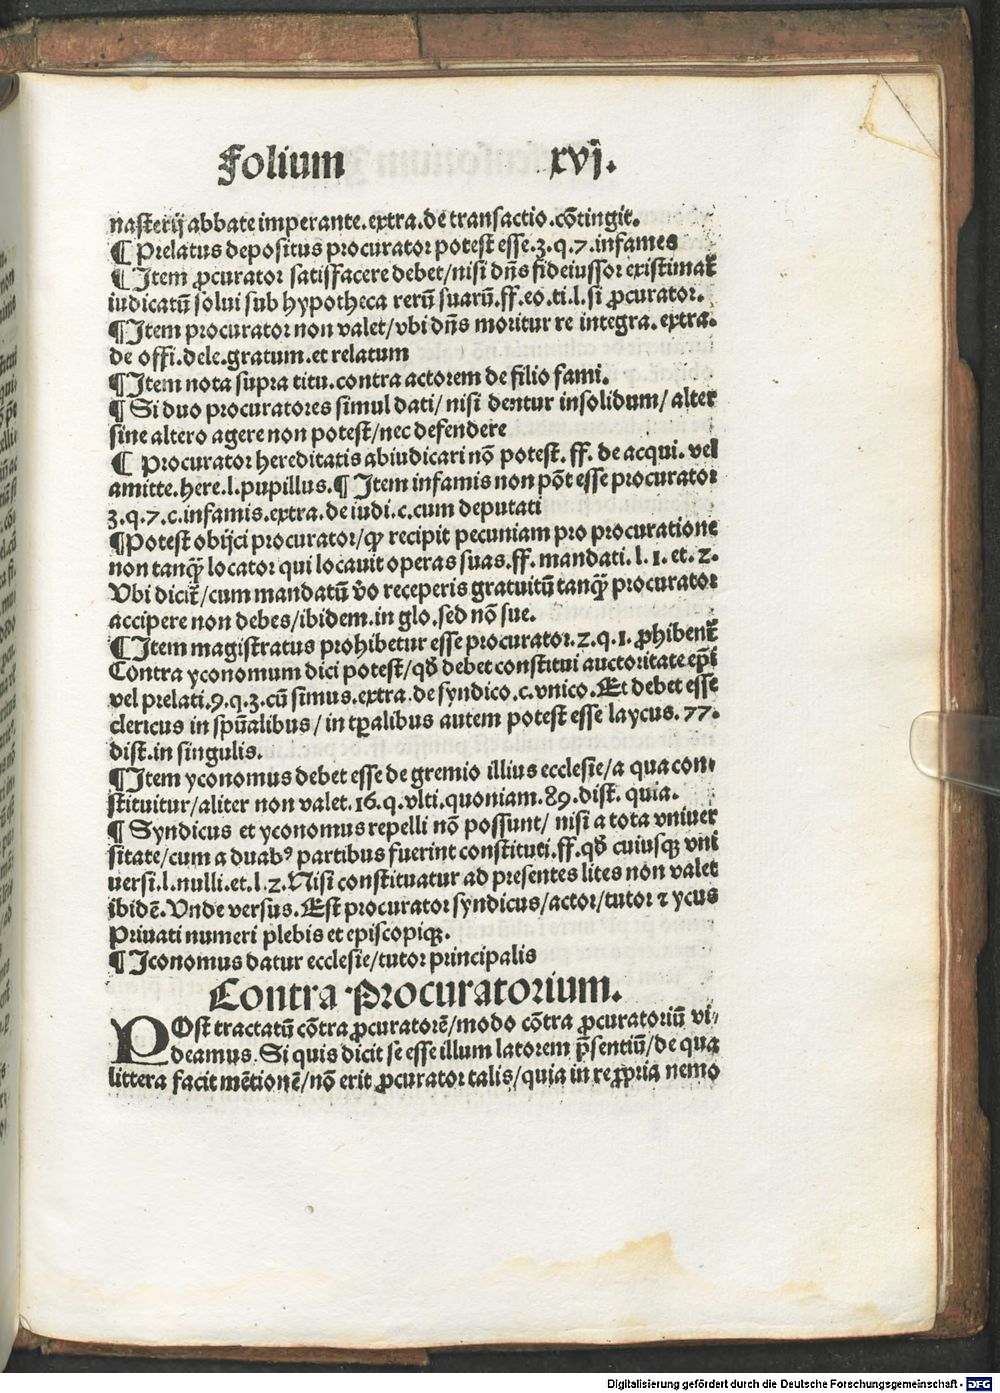 Folium xvj.
nasterij abbate imperante. extra. de transactio. cōtingit.
¶ Prelatus depositus procurator potest esse. 3. q. 7. infames
¶ Item ꝓcurator satisfacere debet/nisi dn̄s fideiussor existimat᷑
iudicatū solui sub hypotheca rerū suarū. ff. eo. ti. l. si ꝓcurator.
¶ Item procurator non valet/vbi dn̄s moritur re integra. extra.
de offi. dele. gratum. et relatum
¶ Item nota supra titu. contra actorem de filio fami.
¶ Si duo procuratores simul dati/ nisi dentur insolidum/ alter
sine altero agere non potest/nec defendere
¶ Procurator hereditatis abiudicari nō potest. ff. de acqui. vel
amitte. here. l. pupillus. ¶ Item infamis non pōt esse procurator
3. q. 7. c. infamis. extra. de iudi. c. cum deputati
¶ Potest obijci procurator/ꝙ recipit pecuniam pro procuratione
non tanqꝫ locator qui locauit operas suas. ff. mandati. l. 1. et. 2.
Vbi dicit᷑/cum mandatū v̄o receperis gratuitū tanqꝫ procurator
accipere non debes/ibidem. in glo. sed nō sue.
¶ Item magistratus prohibetur esse procurator. 2. q. 1. ꝓhibent᷑
Contra yconomum dici potest/qđ debet constitui auctoritate ep̄i
vel prelati. 9. q. 3. cū simus. extra. de syndico. c. vnico. Et debet esse
clericus in spūalibus/ in tꝑalibus autem potest esse laycus. 77.
dist. in singulis.
¶ Item yconomus debet esse de gremio illius ecclesie/a qua con-
stituitur/aliter non valet. 16. q. vlti. quoniam. 89. dist. quia.
¶ Syndicus et yconomus repelli nō possunt/ nisi a tota vniuer
sitate/cum a duabꝰ partibus fuerint constituti. ff. qđ cuiusqꝫ vni
uersi. l. nulli. et. l. 2. Nisi constituatur ad presentes lites non valet
ibidē. Vnde versus. Est procurator syndicus/actor/tutor ⁊ ycus
Priuati numeri plebis et episcopiqꝫ.
¶ Iconomus datur ecclesie/tutor principalis
Contra Procuratorium.
POst tractatū cōtra ꝓcuratorē/modo cōtra ꝓcuratoriū vi-
deamus. Si quis dicit se esse illum latorem p̄sentiū/de qua
littera facit mētionē/nō erit ꝓcurator talis/quia in re ꝓpria nemo
Digitalisierung gefördert durch die Deutsche Forschungsgemeinschaft - DFG